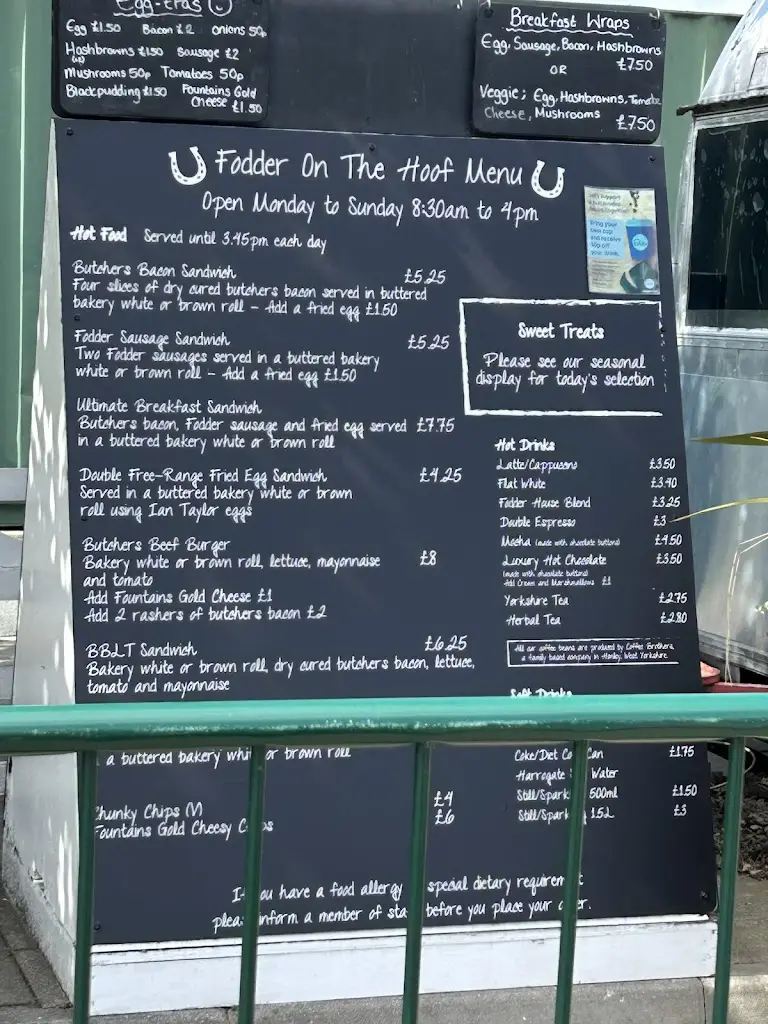 Egg-tras
Egg £1.50 Bacon £2 Onions 50p
Hashbrowns £1.50 Sausage £2
Mushrooms 50p Tomatoes 50p
Blackpudding £1.50 Fountains Gold
Cheese £1.50
Breakfast Wraps
Egg, Sausage, Bacon, Hashbrowns
£7.50
OR
Veggie; Egg, Hashbrowns, Tomato
Cheese, Mushrooms £7.50
Fodder On The Hoof Menu
Open Monday to Sunday 8:30am to 4pm
Hot Food Served until 3.45pm each day
Butchers Bacon Sandwich £5.25
Four slices of dry cured butchers bacon served in buttered
bakery white or brown roll – Add a fried egg £1.50
Fodder Sausage Sandwich £5.25
Two Fodder sausages served in a buttered bakery
white or brown roll – Add a fried egg £1.50
Ultimate Breakfast Sandwich
Butchers bacon, Fodder sausage and fried egg served £7.75
in a buttered bakery white or brown roll
Double Free-Range Fried Egg Sandwich £4.25
Served in a buttered bakery white or brown
roll using Ian Taylor eggs
Butchers Beef Burger
Bakery white or brown roll, lettuce, mayonnaise £8
and tomato
Add Fountains Gold Cheese £1
Add 2 rashers of butchers bacon £2
BBLT Sandwich £6.25
Bakery white or brown roll, dry cured butchers bacon, lettuce,
tomato and mayonnaise
a buttered bakery white or brown roll
Chunky Chips (V) £4
Fountains Gold Cheesy Chips £6
Bring your
own cup
and receive
10p off
your drink.
Sweet Treats
Please see our seasonal
display for today's selection
Hot Drinks
Latte/Cappuccino £3.50
Flat White £3.40
Fodder House Blend £3.25
Double Espresso £3
Mocha (made with chocolate buttons) £4.50
Luxury Hot Chocolate £3.50
(made with chocolate buttons)
Add Cream and Marshmallows £1
Yorkshire Tea £2.75
Herbal Tea £2.80
All our coffee beans are produced by Coffee Brothers,
a family based company in Honley, West Yorkshire.
Soft Drinks
Coke/Diet Coke Can £1.75
Harrogate Spa Water
Still/Sparkling 500ml £1.50
Still/Sparkling 1.5L £3
If you have a food allergy special dietary requirement
please inform a member of staff before you place your order.